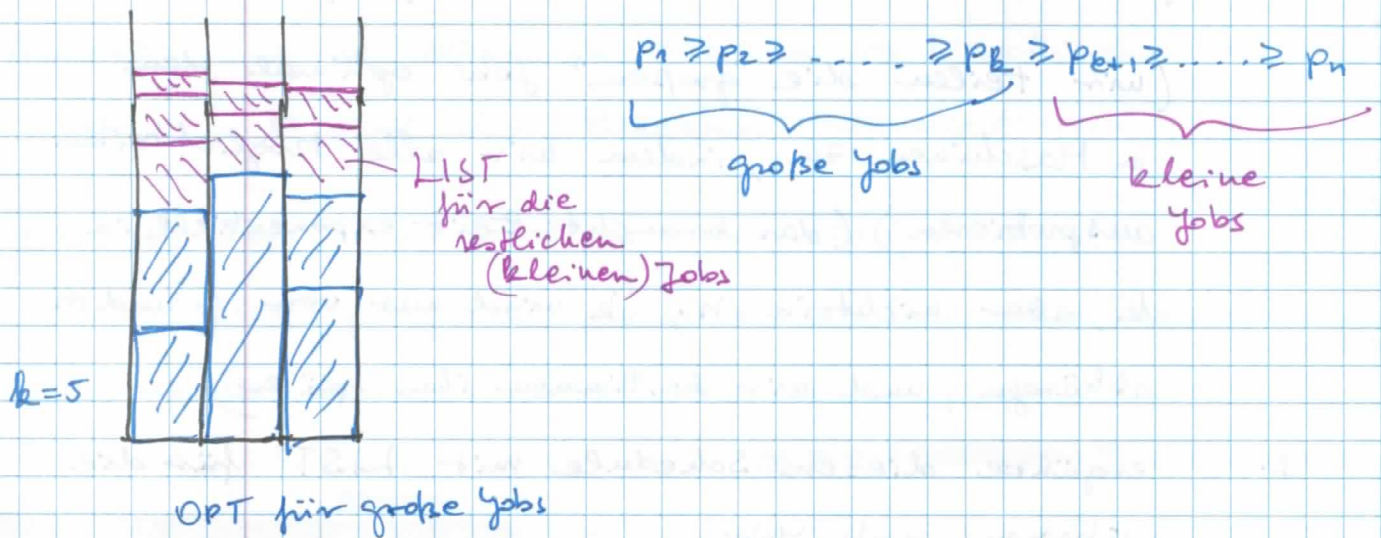 p1 ≥ p2 ≥ ..... ≥ pk ≥ pk+1 ≥ .... ≥ pn
große Jobs
kleine
Jobs
LIST
für die
restlichen
(kleinen) Jobs
k=5
OPT für große Jobs